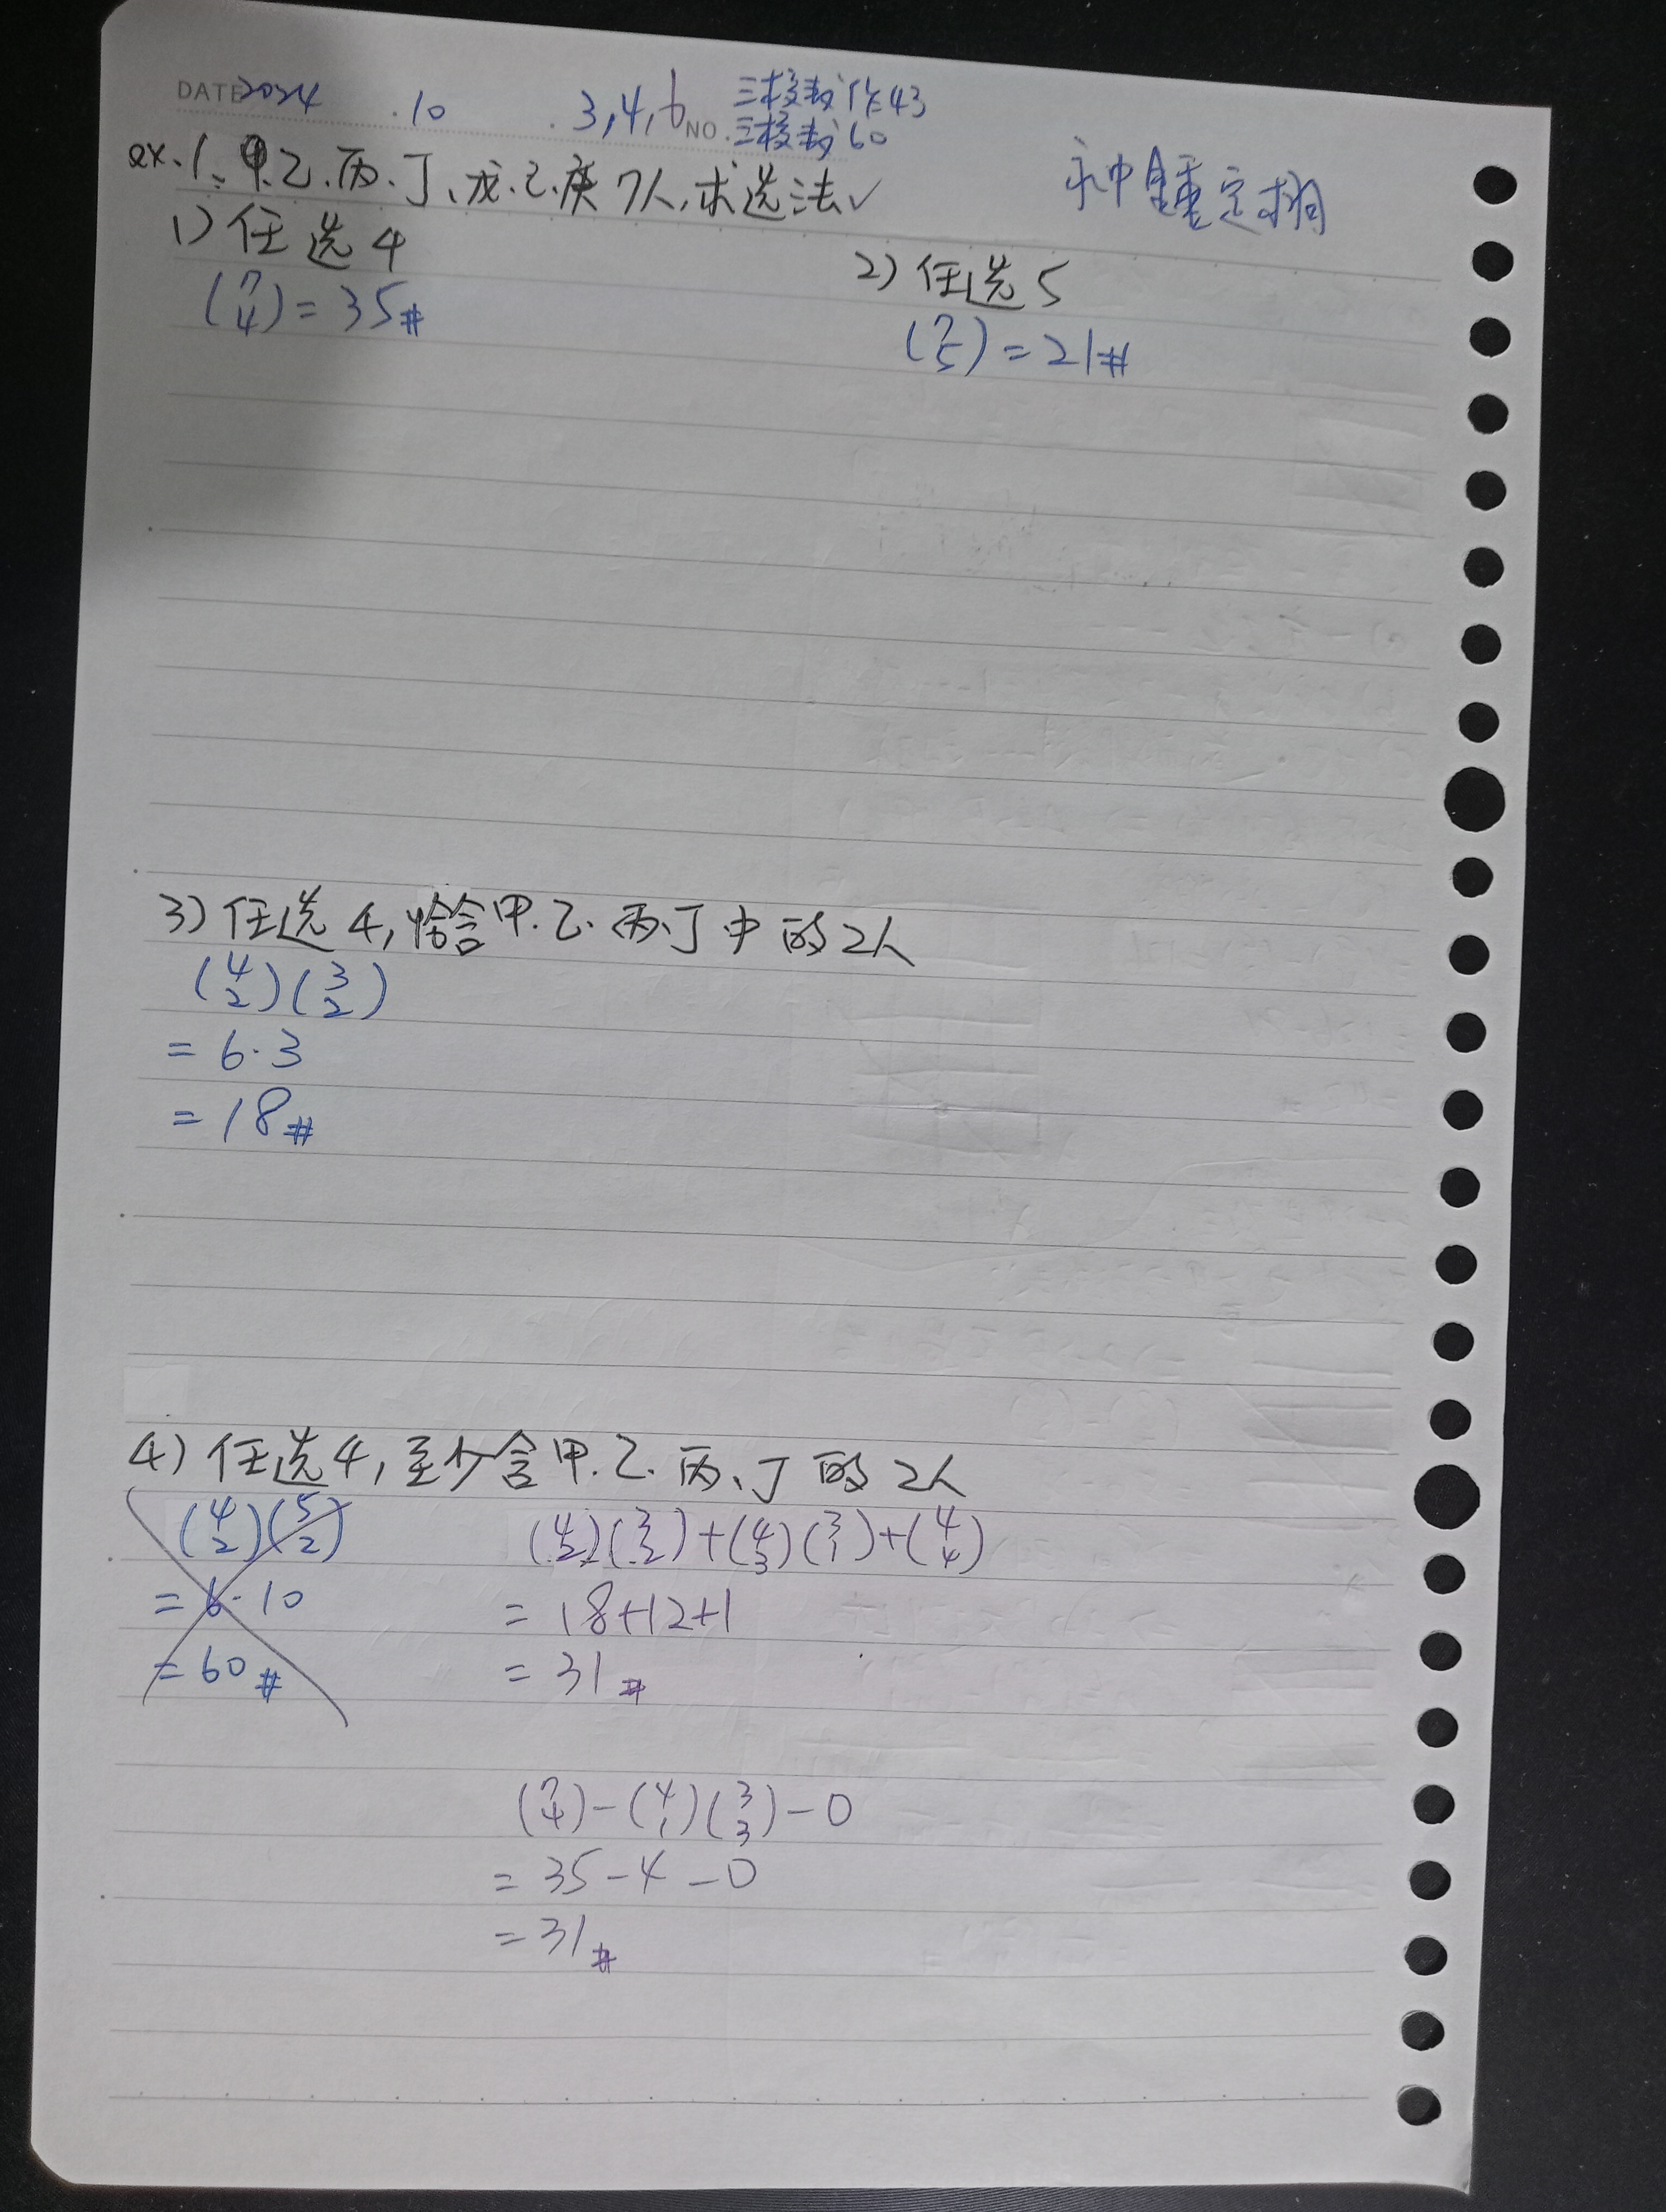 DATE 2024 .10 . 3,4,6 NO.
三校劃作43
三校劃60
ex.1、甲.乙.丙.丁、戊.己.庚7人,求选法
1) 任选4
(7 4) = 35#
2) 任选5
(7 5) = 21#
3) 任选4,恰含甲.乙.丙.丁中的2人
(4 2)(3 2)
= 6·3
= 18#
4) 任选4,至少含甲.乙.丙、丁的2人
(4 2)(5 2)
= 6·10
= 60#
(4 2)(3 2)+(4 3)(3 1)+(4 4)
= 18+12+1
= 31#
(7 4)-(4 1)(3 3)-0
= 35-4-0
= 31#